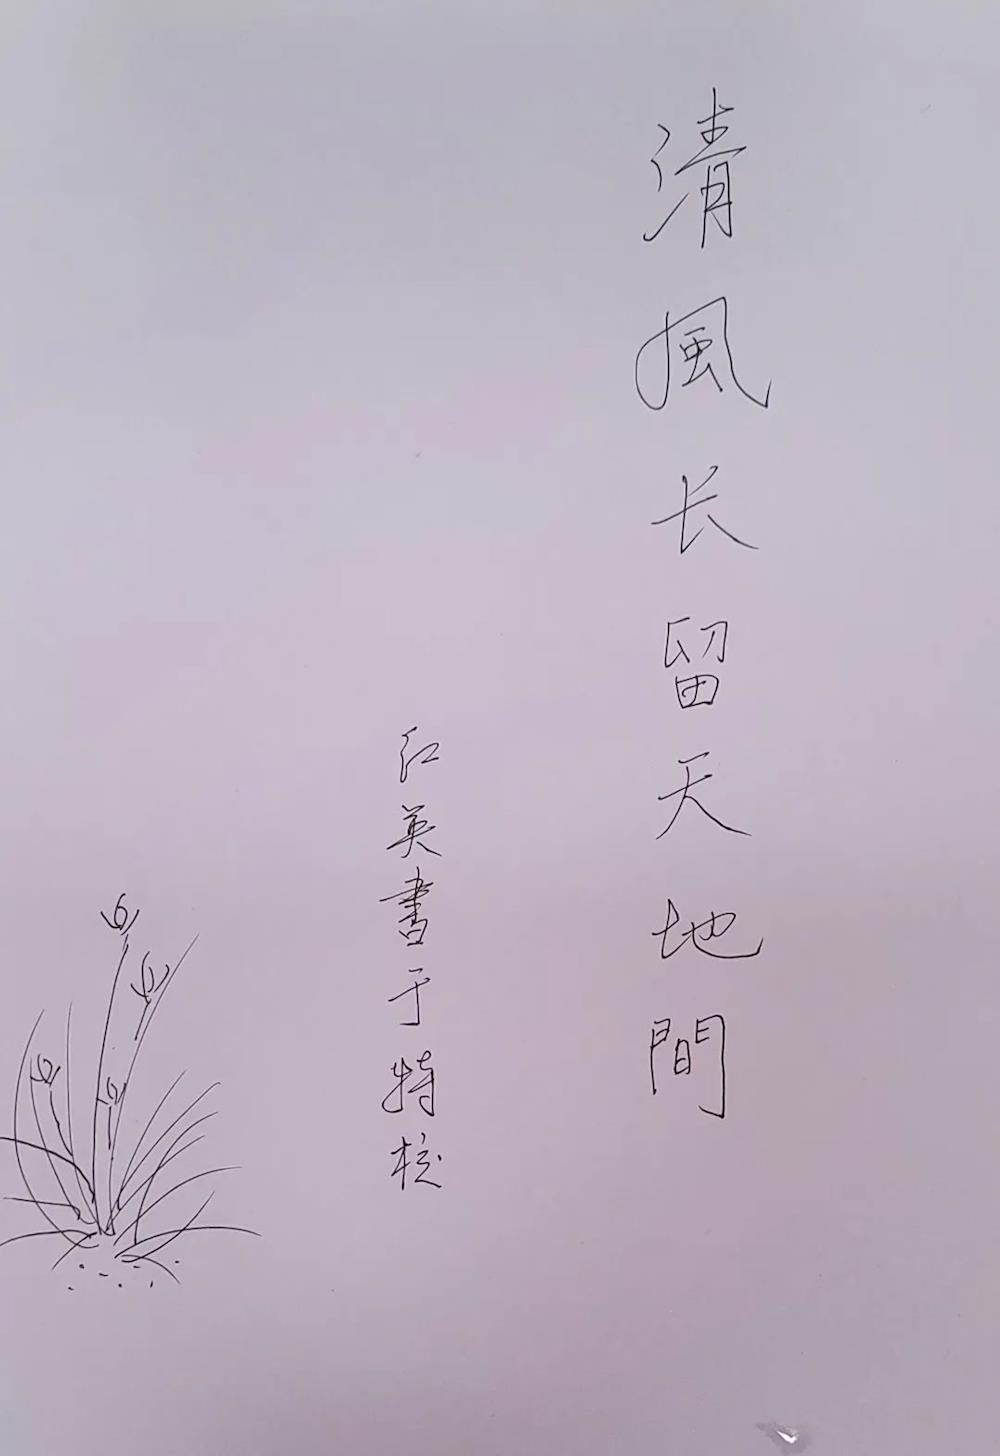 清風长留天地間
红英書于特校